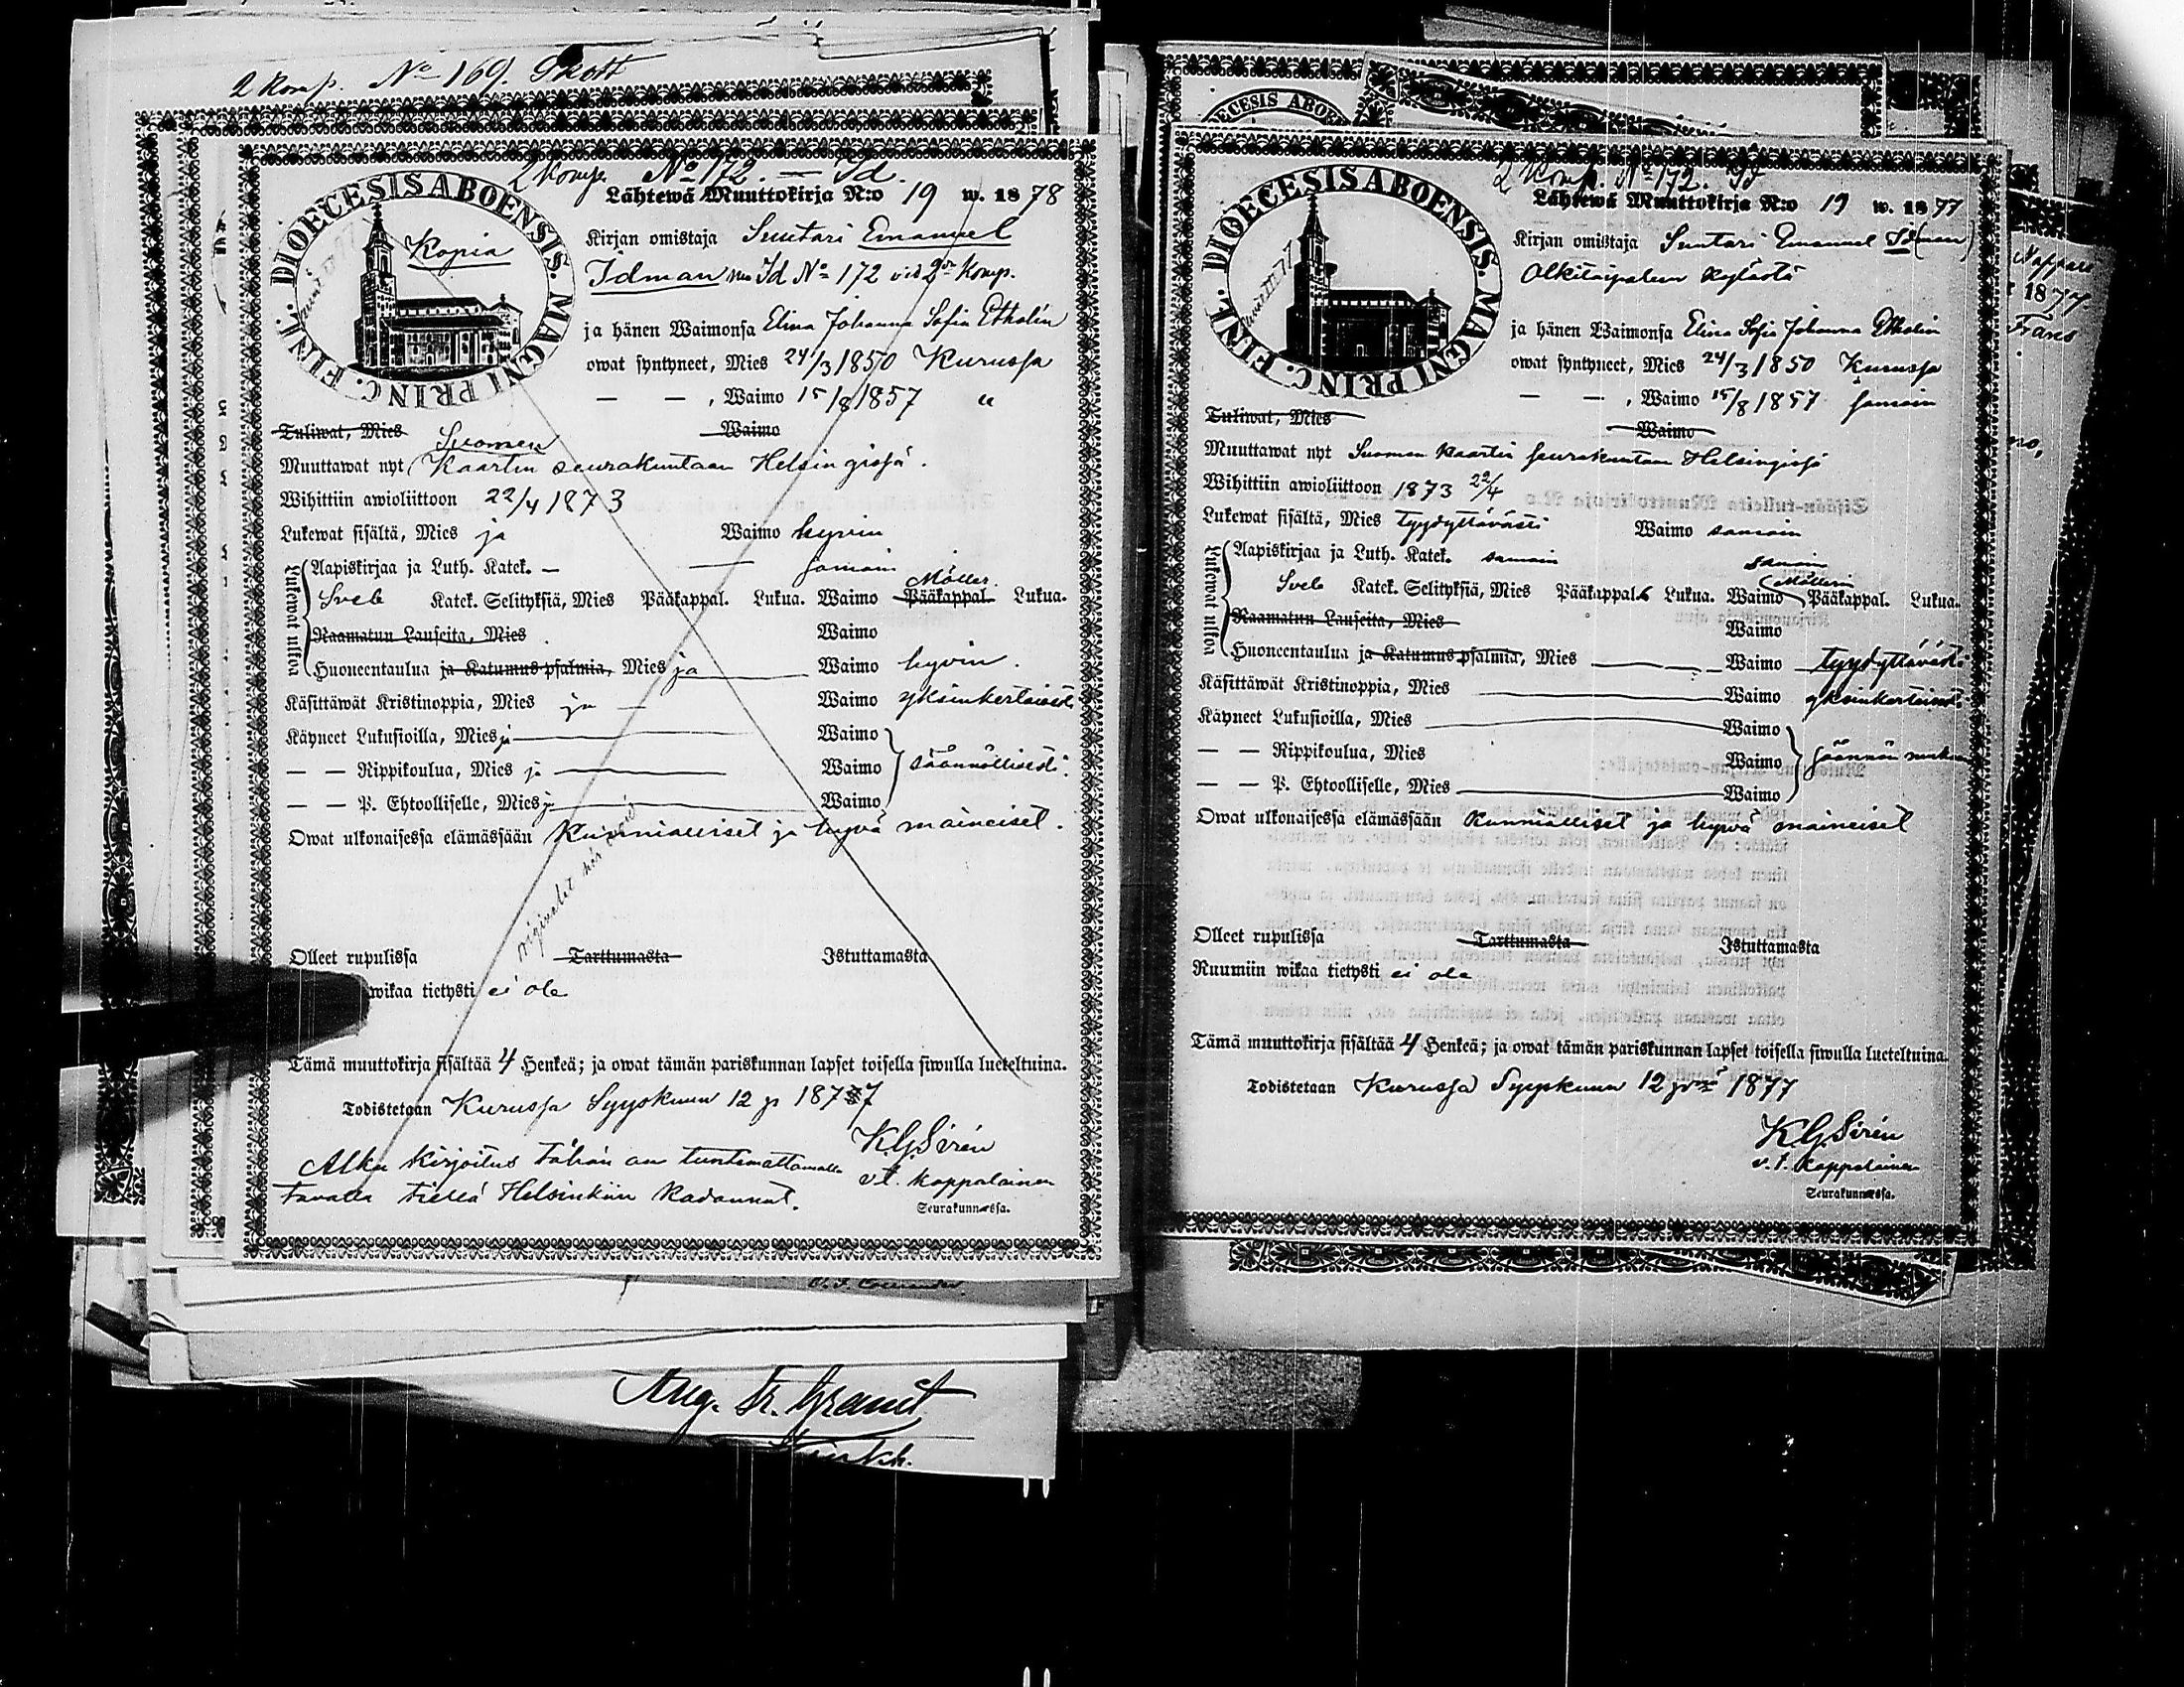 2 Komp. No 169.
2 Komp. No 172. — Id.
DIOECESIS ABOENSIS. MAGNI PRINC. FINL.
Kopia
Lähtewä Muuttokirja N:o 19 w. 1878
Kirjan omistaja Suutari Emanuel
Idman nu Id No 172 vid 2dr Komp.
ja hänen Waimonsa Elina Johanna Sofia Etholin
owat syntyneet, Mies 24/3 1850 Kurussa
— — , Waimo 15/8 1857 "
Tuliwat, Mies Waimo
Suomen
Muuttawat nyt Kaartin seurakuntaan Helsingissä.
Wihittiin awioliittoon 22/4 1873
Lukewat sisältä, Mies ja Waimo hyvin
Lukewat ulkoa
Aapiskirjaa ja Luth. Katek. — — samoin
Möller.
Sveb Katek. Selityksiä, Mies Pääkappal. Lukua. Waimo Pääkappal. Lukua.
Raamatun Lauseita, Mies Waimo
Huoneentaulua ja Katumus psalmia, Mies ja Waimo hyvin.
Käsittäwät Kristinoppia, Mies ja — Waimo yksinkertaisesti
Käyneet Lukusioilla, Mies ja Waimo
— — Rippikoulua, Mies ja Waimo säännöllisesti.
— — P. Ehtoolliselle, Mies ja Waimo
Owat ulkonaisessa elämässään Kunnialliset ja hyvä maineiset.
originalet här invid
Olleet rupulissa Tarttumasta Istuttamasta
wikaa tietysti ei ole
Tämä muuttokirja sisältää 4 Henkeä; ja owat tämän pariskunnan lapset toisella siwulla lueteltuina.
Todistetaan Kurussa Syyskuun 12 p 1877
K.G. Sirén
v.t. kappalainen
Seurakunnassa.
Alku kirjoitus tähän on tuntemattomalla
tavalla tiellä Helsinkiin kadonnut.
Aug. Fr. Granit
ECESIS ABOEN
2 Komp. No 172. Id
DIOECESIS ABOENSIS. MAGNI PRINC. FINL.
Lähtewä Muuttokirja N:o 19 w. 1877
Kirjan omistaja Suutari Emanuel Idman
Olkitaipaleen Kylästä
ja hänen Waimonsa Elina Sofia Johanna Etholin
owat syntyneet, Mies 24/3 1850 Kurussa
— — , Waimo 15/8 1857 samoin
Tuliwat, Mies Waimo
Muuttawat nyt Suomen Kaartin seurakuntaan Helsingissä
Wihittiin awioliittoon 1873 22/4
Lukewat sisältä, Mies tyydyttävästi Waimo samoin
Lukewat ulkoa
Aapiskirjaa ja Luth. Katek. samoin samoin
Möllerin
Sveb Katek. Selityksiä, Mies Pääkappal. Lukua. Waimo Pääkappal. Lukua.
Raamatun Lauseita, Mies Waimo
Huoneentaulua ja Katumus psalmia, Mies Waimo tyydyttäväst.
Käsittäwät Kristinoppia, Mies Waimo yksinkertaisest.
Käyneet Lukusioilla, Mies Waimo
— — Rippikoulua, Mies Waimo säännön mukaan
— — P. Ehtoolliselle, Mies Waimo
Owat ulkonaisessa elämässään Kunnialliset ja hyvä maineiset
Olleet rupulissa Tarttumasta Istuttamasta
Ruumiin wikaa tietysti ei ole
Tämä muuttokirja sisältää 4 Henkeä; ja owat tämän pariskunnan lapset toisella siwulla lueteltuina.
Todistetaan Kurussa Syyskuun 12 p:nä 1877
K.G. Sirén
v.t. Kappalainen
Seurakunnassa.
1877
Frans